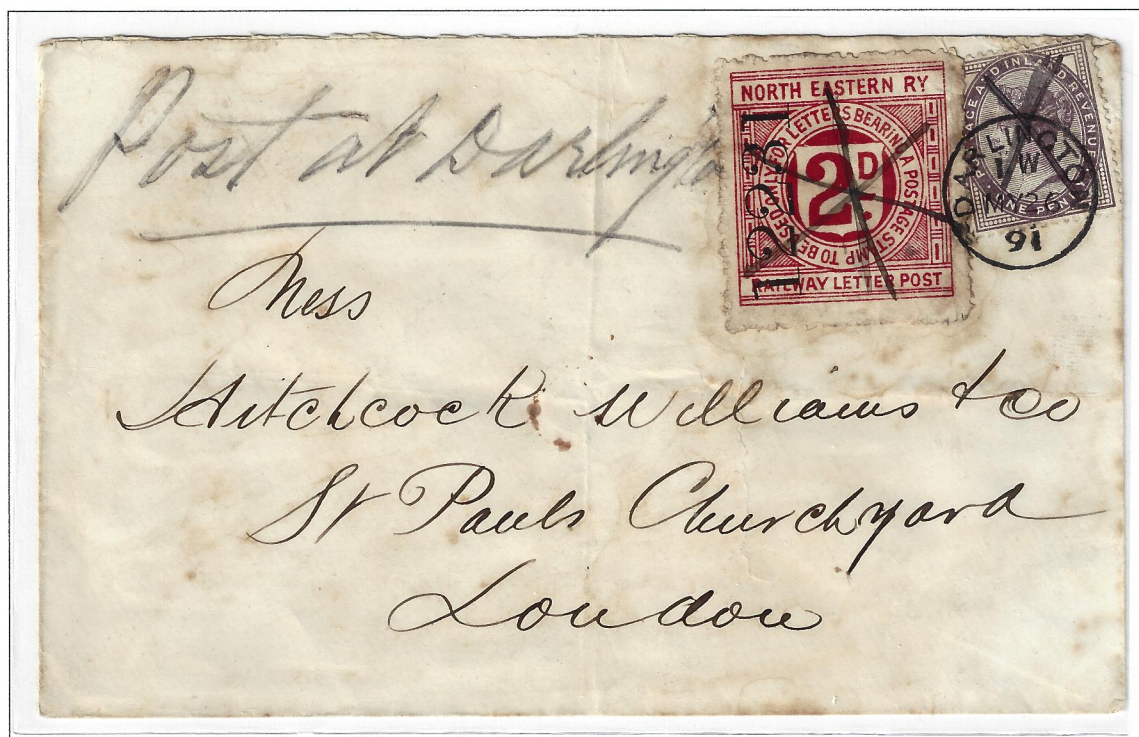 Post at Darlington
NORTH EASTERN RY
USED ONLY FOR LETTERS BEARING A POSTAGE STAMP TO BE
2D
1231
RAILWAY LETTER POST
POSTAGE AND INLAND REVENUE
ONE PENNY
DARLINGTON
1 W
MY 26
91
Mess
Hitchcock Williams & Co
St Pauls Churchyard
London